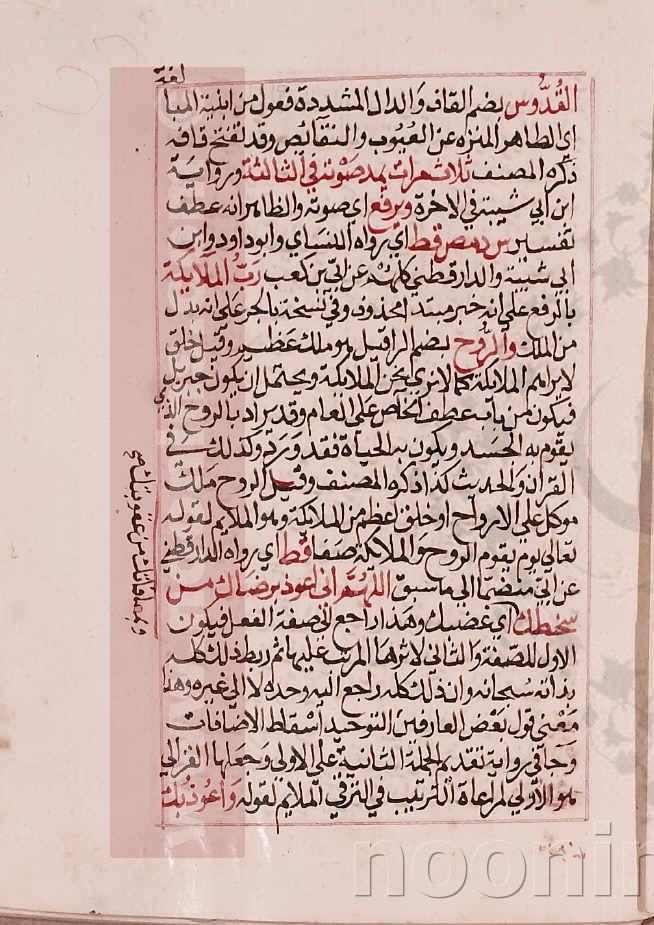 لغة
القُدُّوس بضم القاف والدال المشددة فعول من ابنية المبا
اي الطاهر المنزه عن العيوب والنقائص وقد تفتح قافه
ذكره المصنف ثلاث مرات يمد صوته في الثالثة ورواية
ابن ابي شيبة في الاخرة ويرفع اي صوته والظاهر انه عطف
تفسير س د مص قط اي رواه النساي وابو داود وابن
ابي شيبة والدارقطني كلهم عن ابي بن كعب ربُّ الملايكة
بالرفع على انه خبر مبتدا محذوف وفي نسخة بالجر على انه بدل
من الملك والرُّوح بضم الرا قيل هو ملك عظيم وقيل خلق
لا يراهم الملايكة كما لا نري نحن الملايكة ويحتمل ان يكون جبريل
فيكون من باب عطف الخاص على العام وقد يراد بالروح الذي
يقوم به الجسد ويكون به الحياة فقد ورد كذلك في
القران والحديث كذا ذكره المصنف وقيل الروح ملك
موكل على الارواح او خلق اعظم من الملايكة وهو الملايم لقوله
تعالي يوم يقوم الروح والملايكة صفا قط اي رواه الدارقطني
عن ابي منضما الي ما سبق اللهم اني اعوذ برضاك من
سخطك اي غضبك وهذا راجع الى صفة الفعل فيكون
الاول للصفة والثاني لاثرها المرتب عليها ثم ربط ذلك كله
بذاته سبحانه وان ذلك كله راجع اليه وحده لا الي غيره وهذا
معني قول بعض العارفين التوحيد اسقاط الاضافات
وجا في رواية تقديم الجملة الثانية على الاولي وجعلها الغزالي
هو الاولي لمراعاة الترتيب في الترقي الملايم لقوله واعوذ بك
وبمعافاتك من عقوبتك صح
noonin